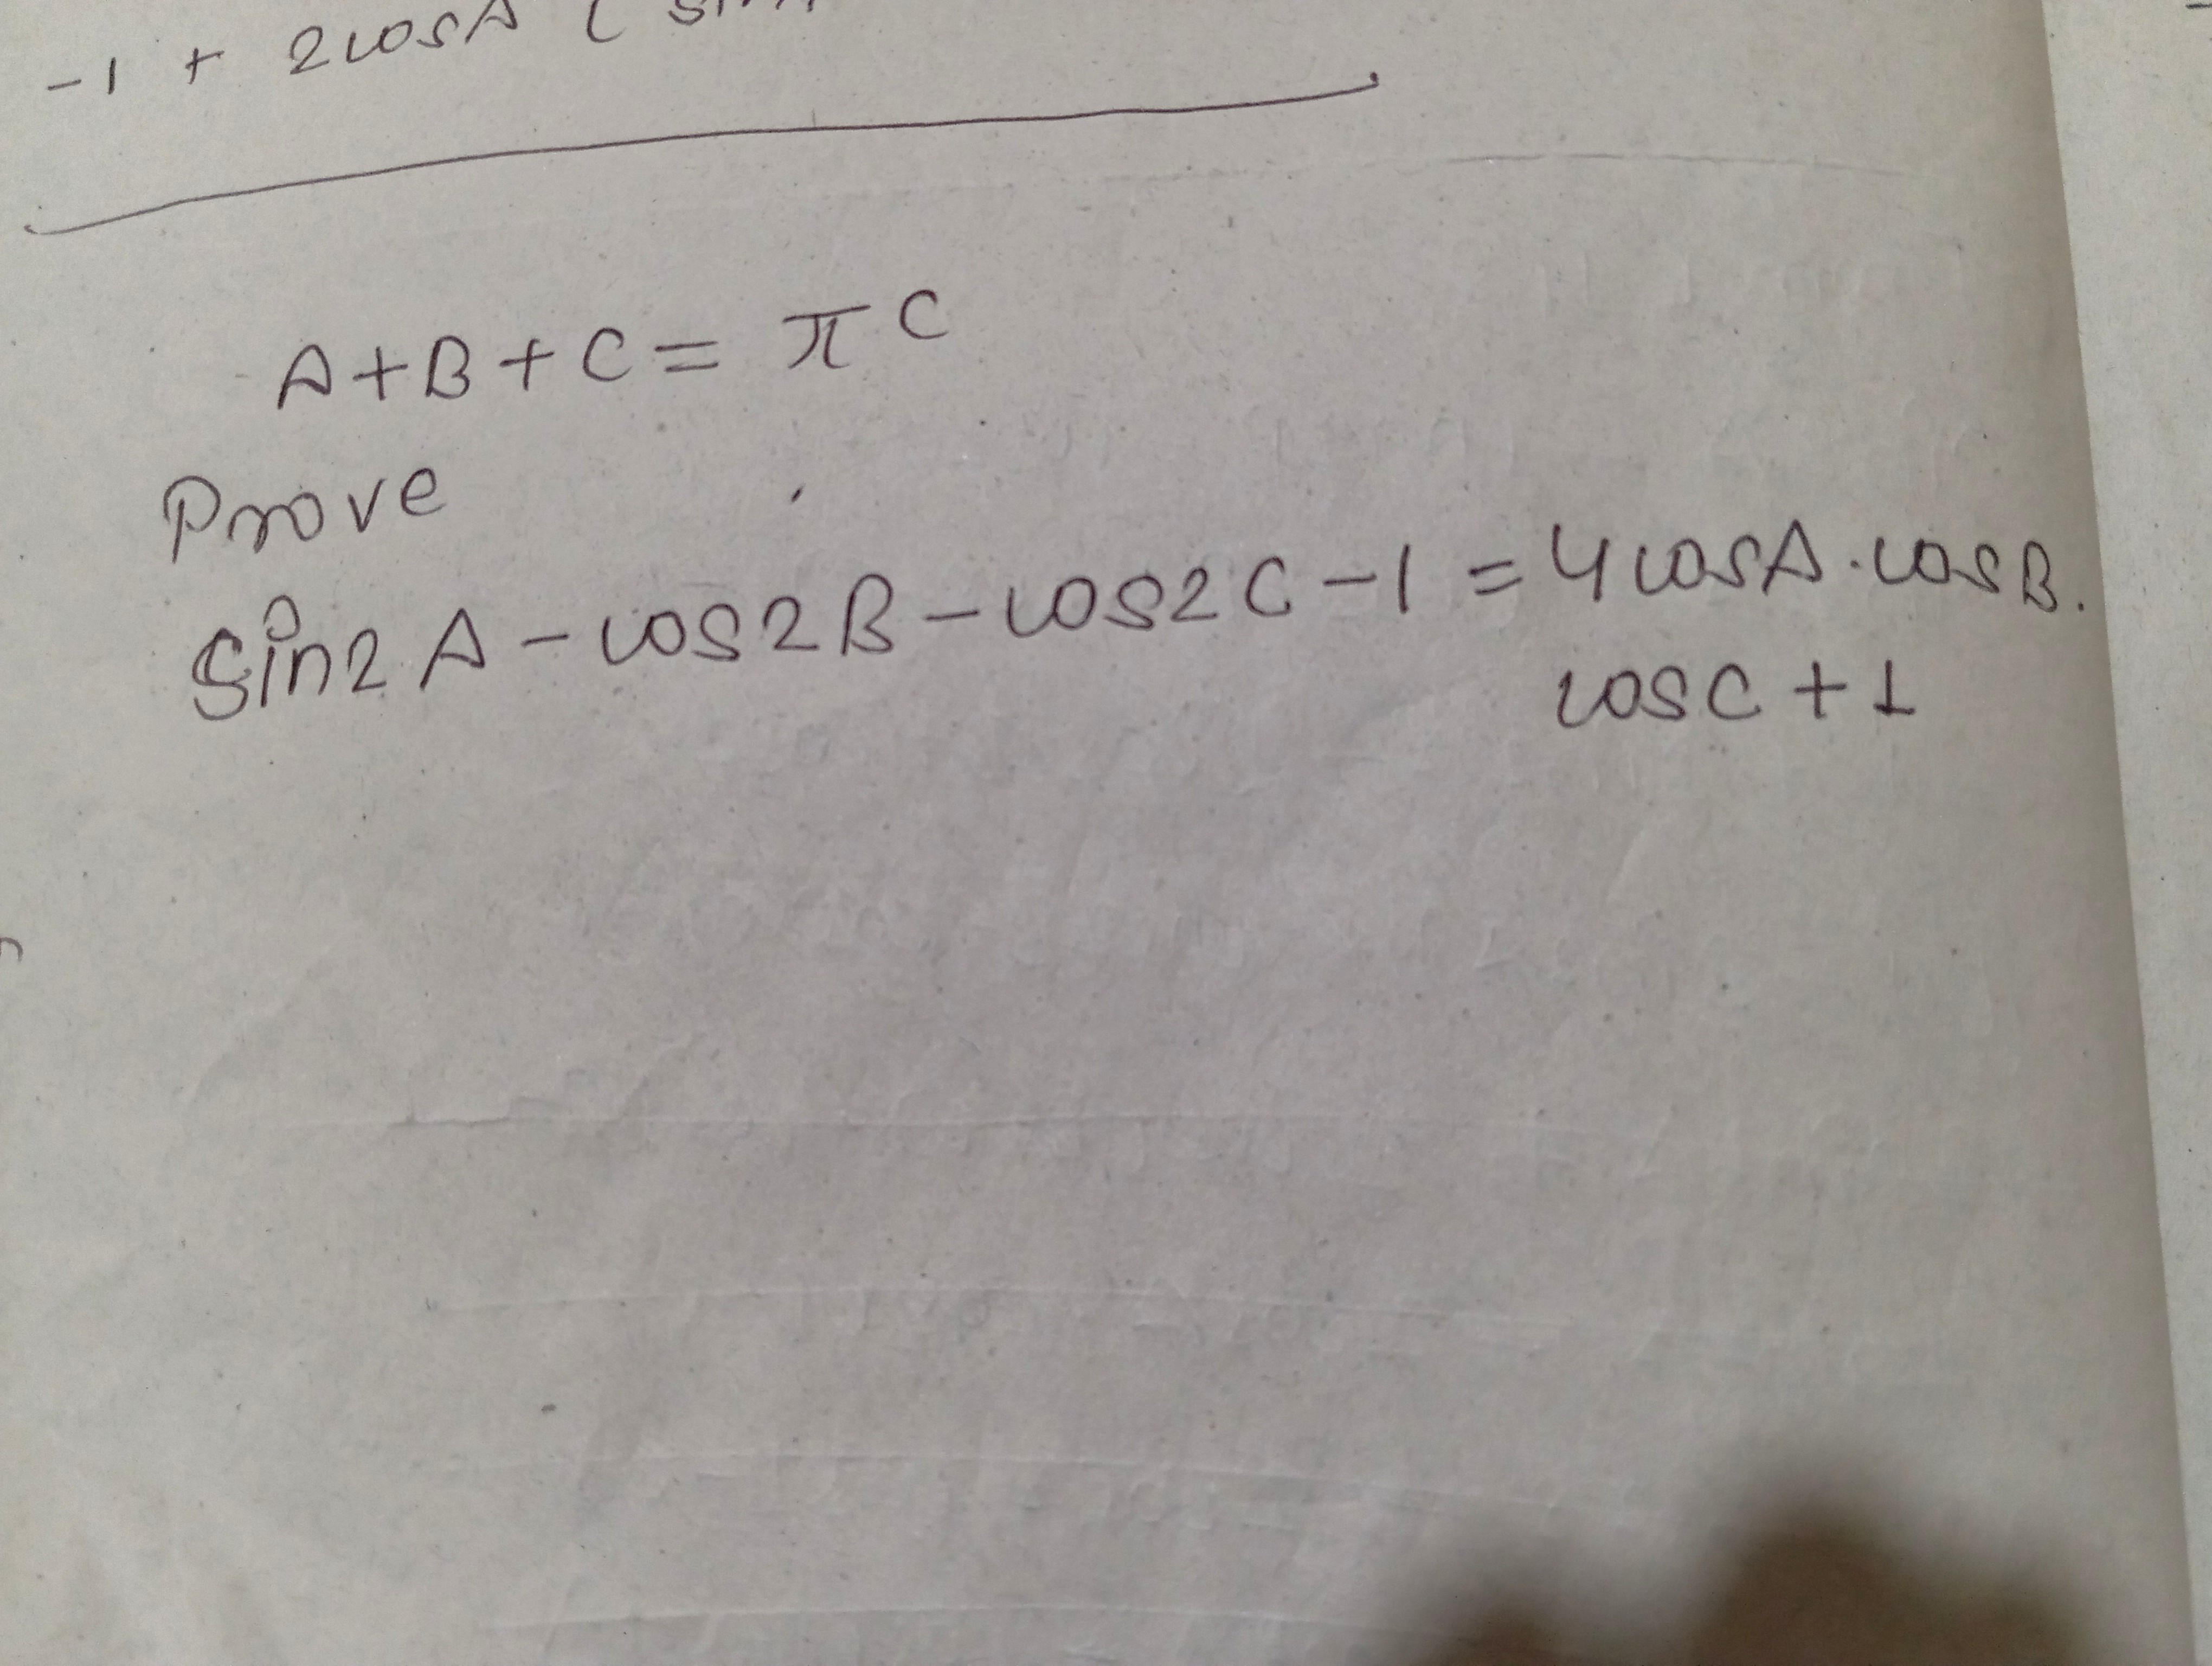 -1 + 2cosA (
A+B+C= π^c
Prove
sin2A-cos2B-cos2C-1=4cosA.cosB.
cosC+1